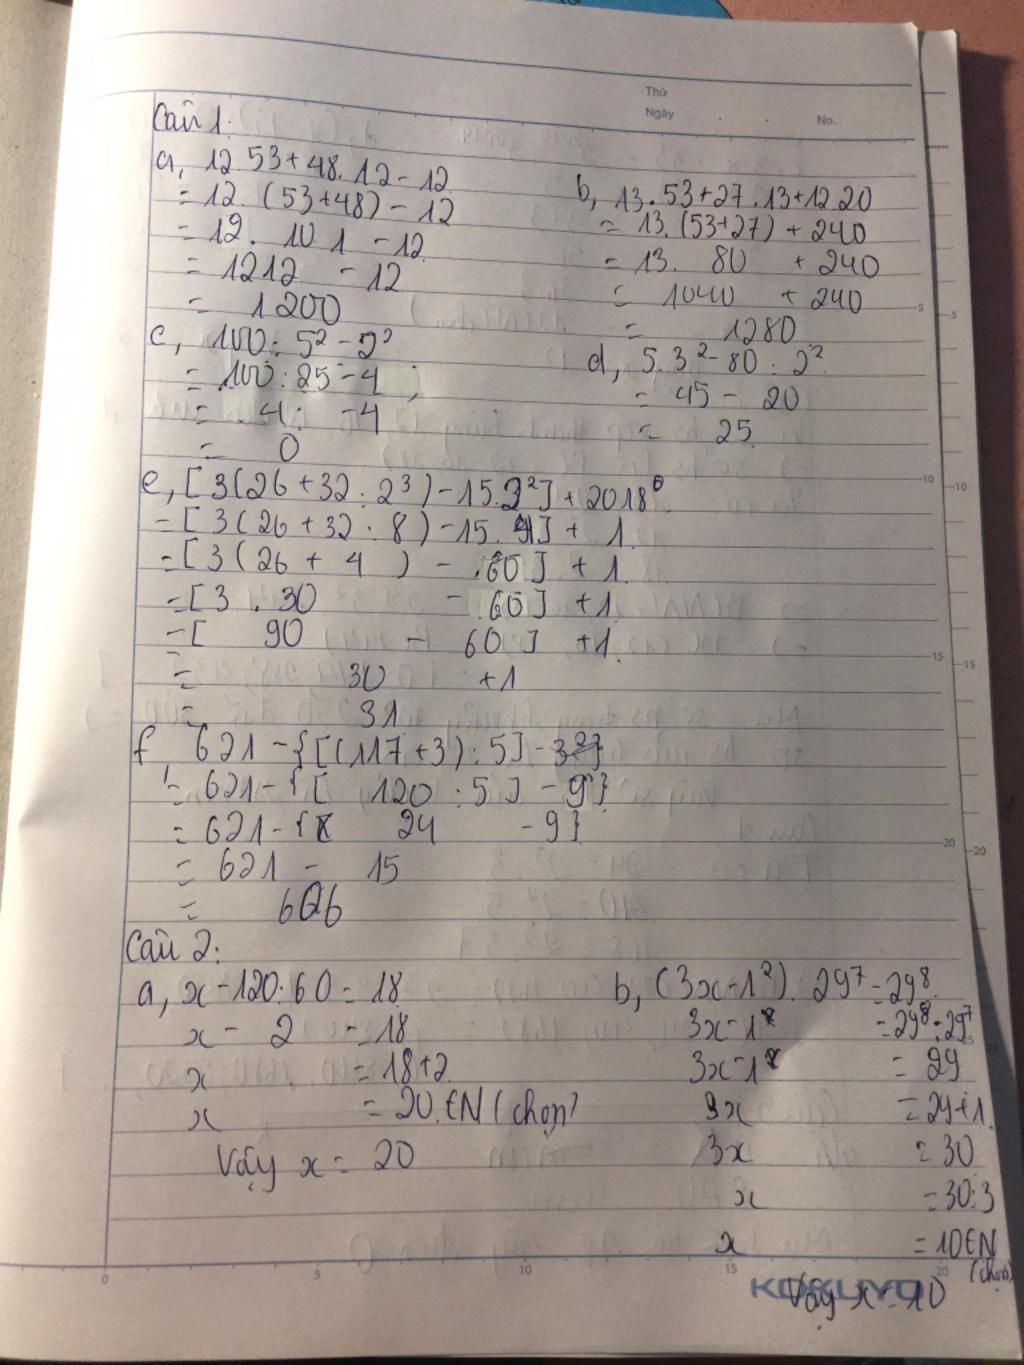 Thứ
Ngày . . No.
Câu 1:
a, 12.53+48.12-12
= 12.(53+48)-12
= 12. 101 -12
= 1212 -12
= 1200
b, 13.53+27.13+12.20
= 13.(53+27)+240
= 13. 80 +240
= 1040 +240
= 1280
c, 100:5²-2²
= 100:25-4
= 4 -4
= 0
d, 5.3²-80:2²
= 45 - 20
= 25
e, [3(26+32:2³)-15.2²]+2018⁰
=[3(26+32:8)-15.4]+ 1
=[3(26+ 4 ) - 60]+1
=[3.30 - 60]+1
=[ 90 - 60] +1
= 30 +1
= 31
f, 621-{[(117+3):5]-3²}
= 621-{[ 120 :5]-9}
= 621-{ 24 -9}
= 621- 15
= 606
Câu 2:
a, x-120:60=18
x- 2 =18
x =18+2
x =20 ∈N(chọn)
Vậy x= 20
b, (3x-1²).29⁷=29⁸
3x-1 =29⁸:29⁷
3x-1 = 29
3x =29+1
3x =30
x =30:3
x =10∈N
(chọn)
Vậy x=10
5 5
10 10
15 15
20 20
0 5 10 15 20
KOKUYO